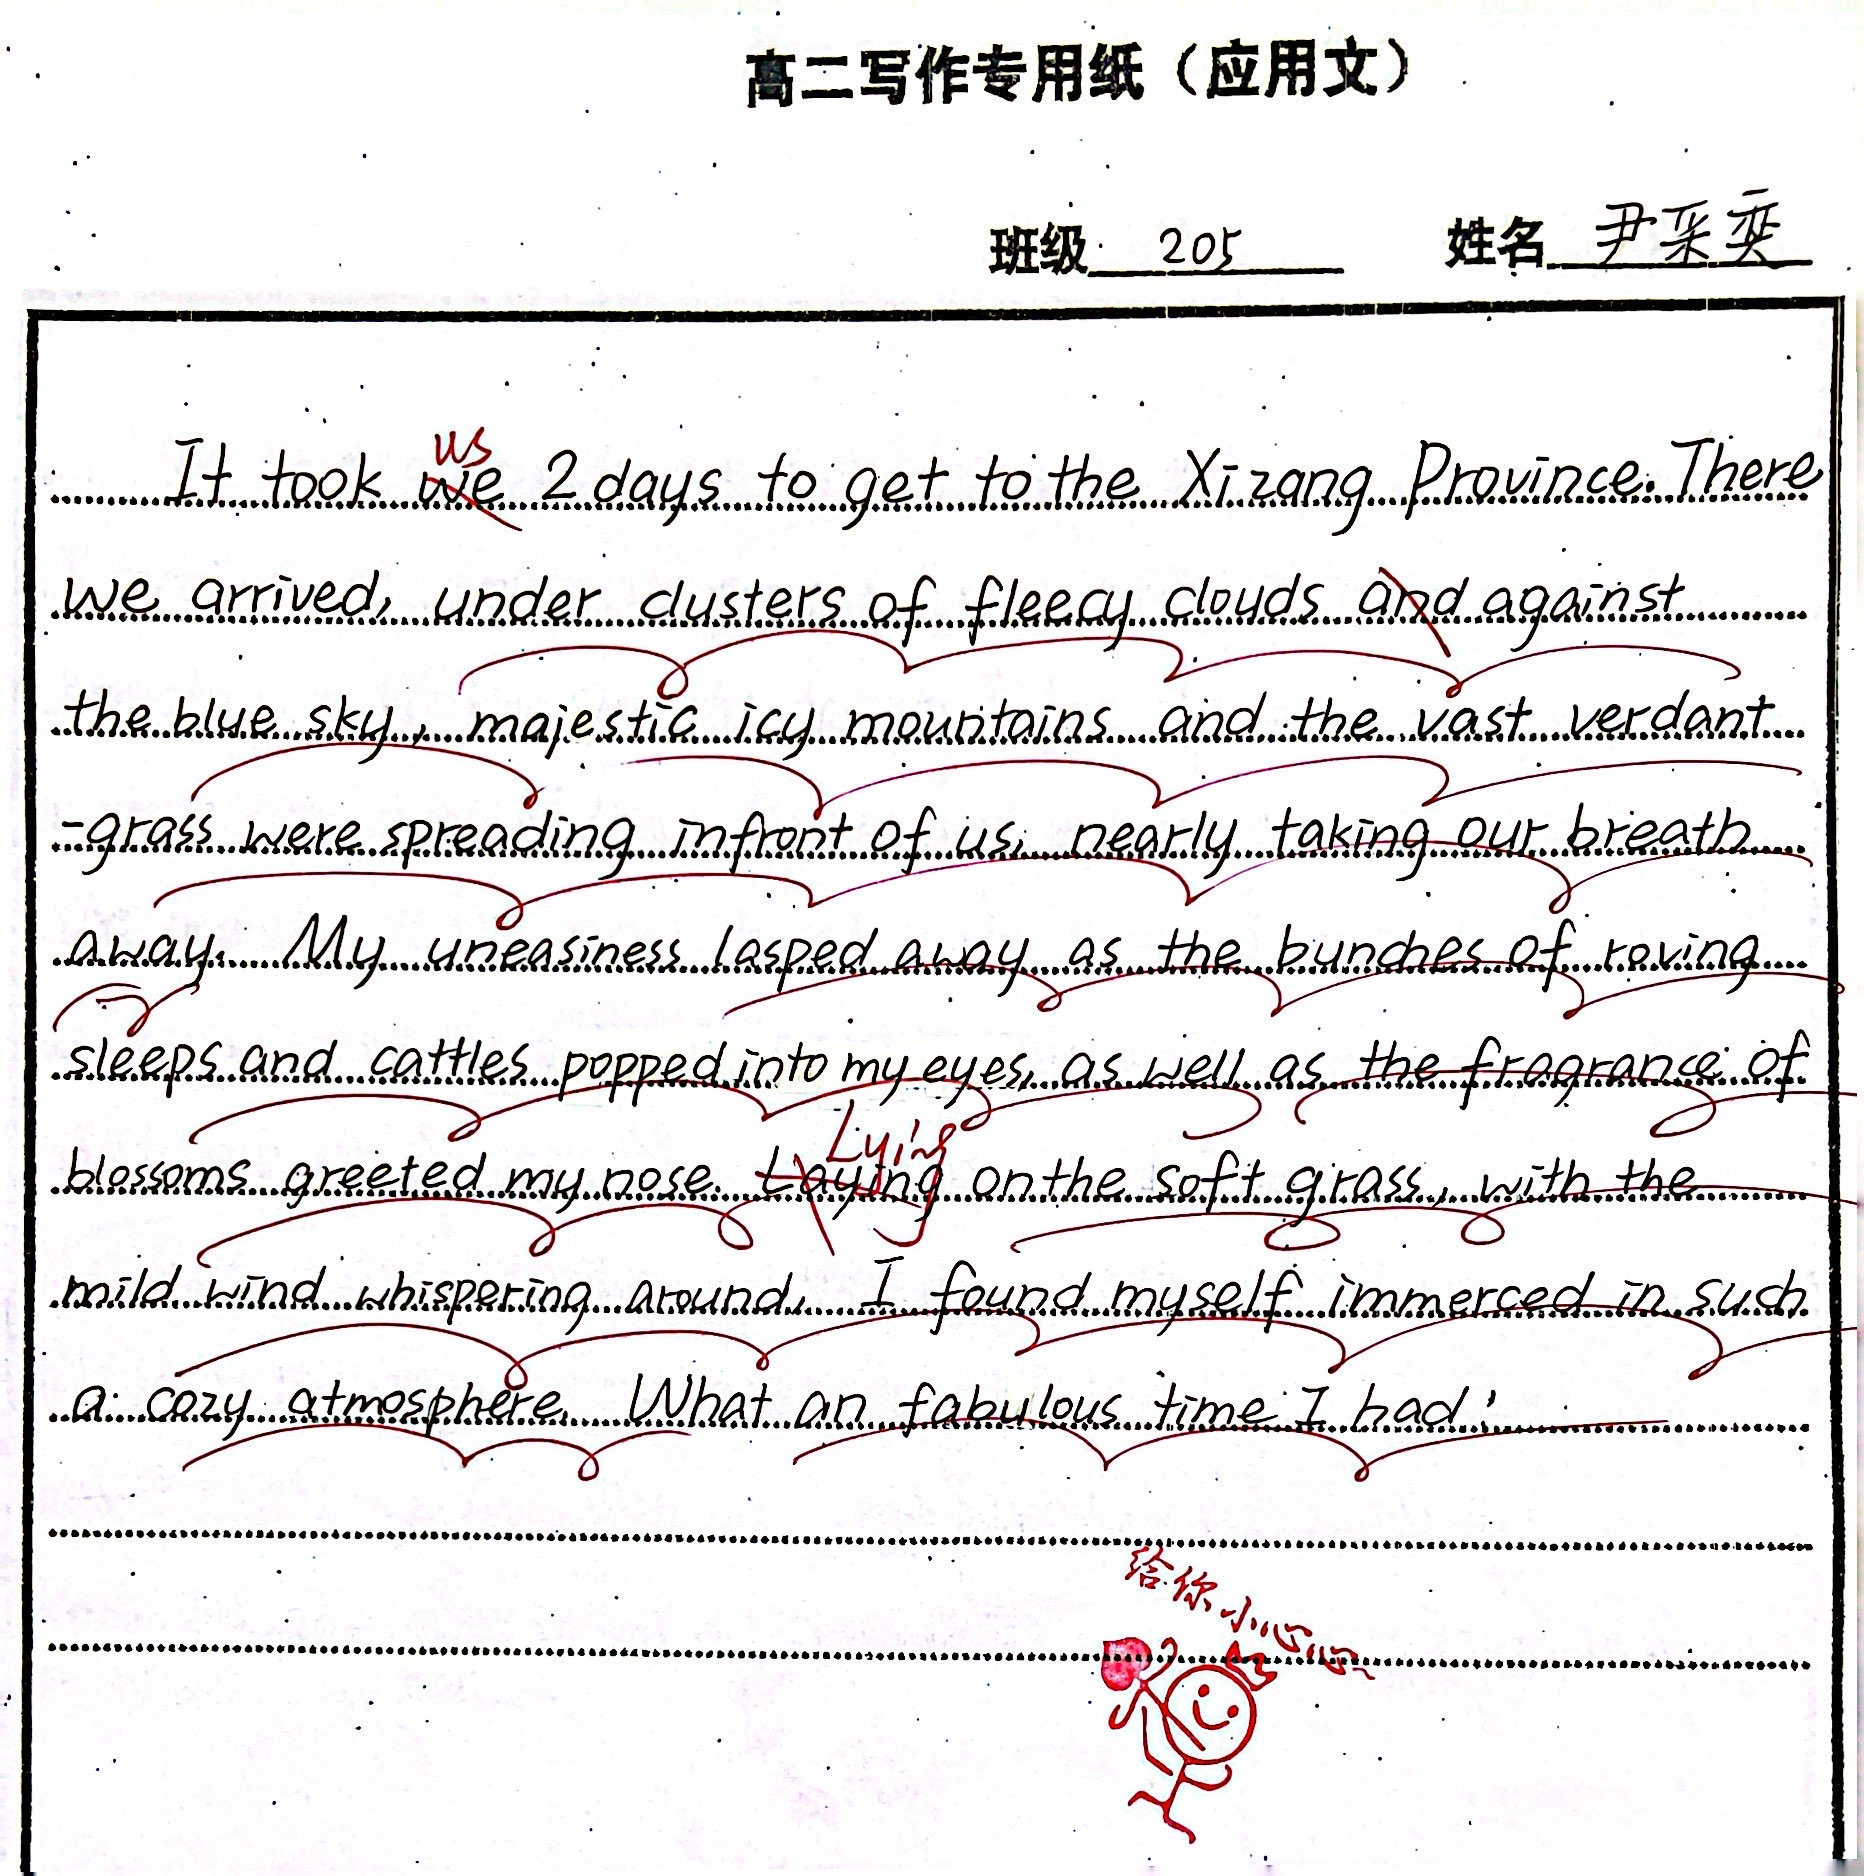 高二写作专用纸（应用文）
班级 205 姓名 尹采奕
us
It took we 2 days to get to the Xizang Province. There
we arrived, under clusters of fleecy clouds and against
the blue sky, majestic icy mountains and the vast verdant
-grass were spreading infront of us, nearly taking our breath
away. My uneasiness lasped away as the bunches of roving
sleeps and cattles popped into my eyes, as well as the fragrance of
Lying
blossoms greeted my nose. Laying on the soft grass, with the
mild wind whispering around, I found myself immerced in such
a cozy atmosphere. What an fabulous time I had!
给你小心心~